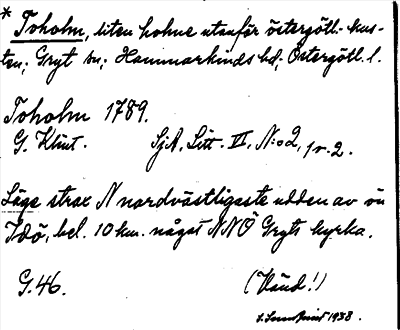 * Toholm, liten holme utanför östergötl. kus-
ten; Gryt sn; Hammarkinds hd; Östergötl. l.
Toholm 1789.
G. Klint. SjA, Litt. VI, N:o 2, 1 v. 2.
Läge strax N nordvästligaste udden av ön
Idö, bel. 10 km. något NNÖ Gryts kyrka.
G. 46. (Känd!)
1938.